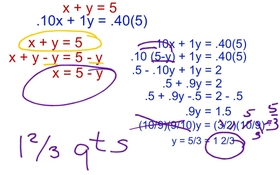 x + y = 5
.10x + 1y = .40(5)
x + y = 5
x + y - y = 5 - y
x = 5 - y
.10x + 1y = .40(5)
.10 (5-y) + 1y = .40(5)
.5 - .10y + 1y = 2
.5 + .9y = 2
.5 + .9y -.5 = 2 - .5
.9y = 1.5
(10/9)(9/10)y = (3/2)(10/9)
y = 5/3 = 1 2/3
1 2/3 qts